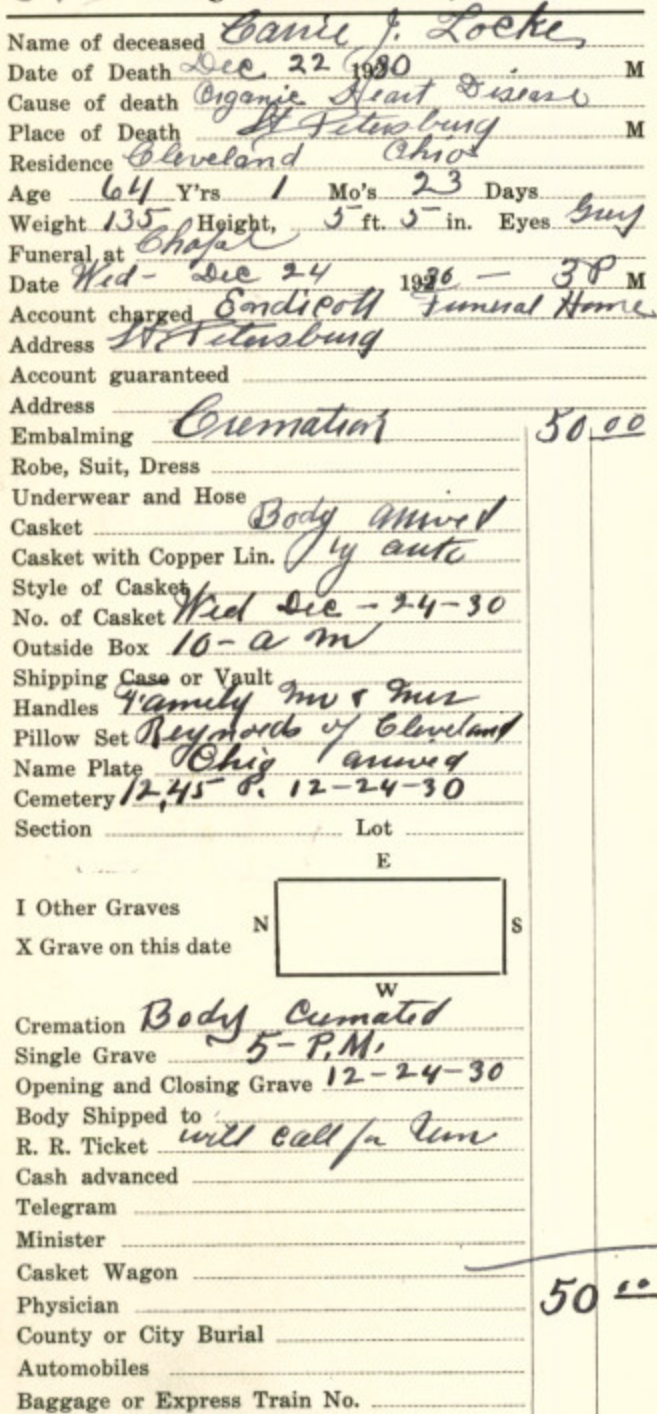 Name of deceased Carrie J. Locke
Date of Death Dec 22 1930 M
Cause of death Organic Heart Disease
Place of Death St Petersburg M
Residence Cleveland Ohio
Age 64 Y'rs 1 Mo's 23 Days
Weight 135 Height, 5 ft. 5 in. Eyes Grey
Funeral at Chapel
Date Wed - Dec 24 1930 - 3 P M
Account charged Endicott Funeral Home
Address St Petersburg
Account guaranteed
Address
Embalming Cremation 50.00
Robe, Suit, Dress
Underwear and Hose
Casket Body arrived
Casket with Copper Lin. by auto
Style of Casket
No. of Casket Wed Dec - 24-30
Outside Box 10 - a m
Shipping Case or Vault
Handles Family Mr & Mrs
Pillow Set Reynolds of Cleveland
Name Plate Ohio arrived
Cemetery 12,45 P. 12-24-30
Section Lot
E
I Other Graves
N S
X Grave on this date
W
Cremation Body Cremated
Single Grave 5- P.M.
Opening and Closing Grave 12-24-30
Body Shipped to
R. R. Ticket will call for
Cash advanced
Telegram
Minister
Casket Wagon
Physician 50 00
County or City Burial
Automobiles
Baggage or Express Train No.